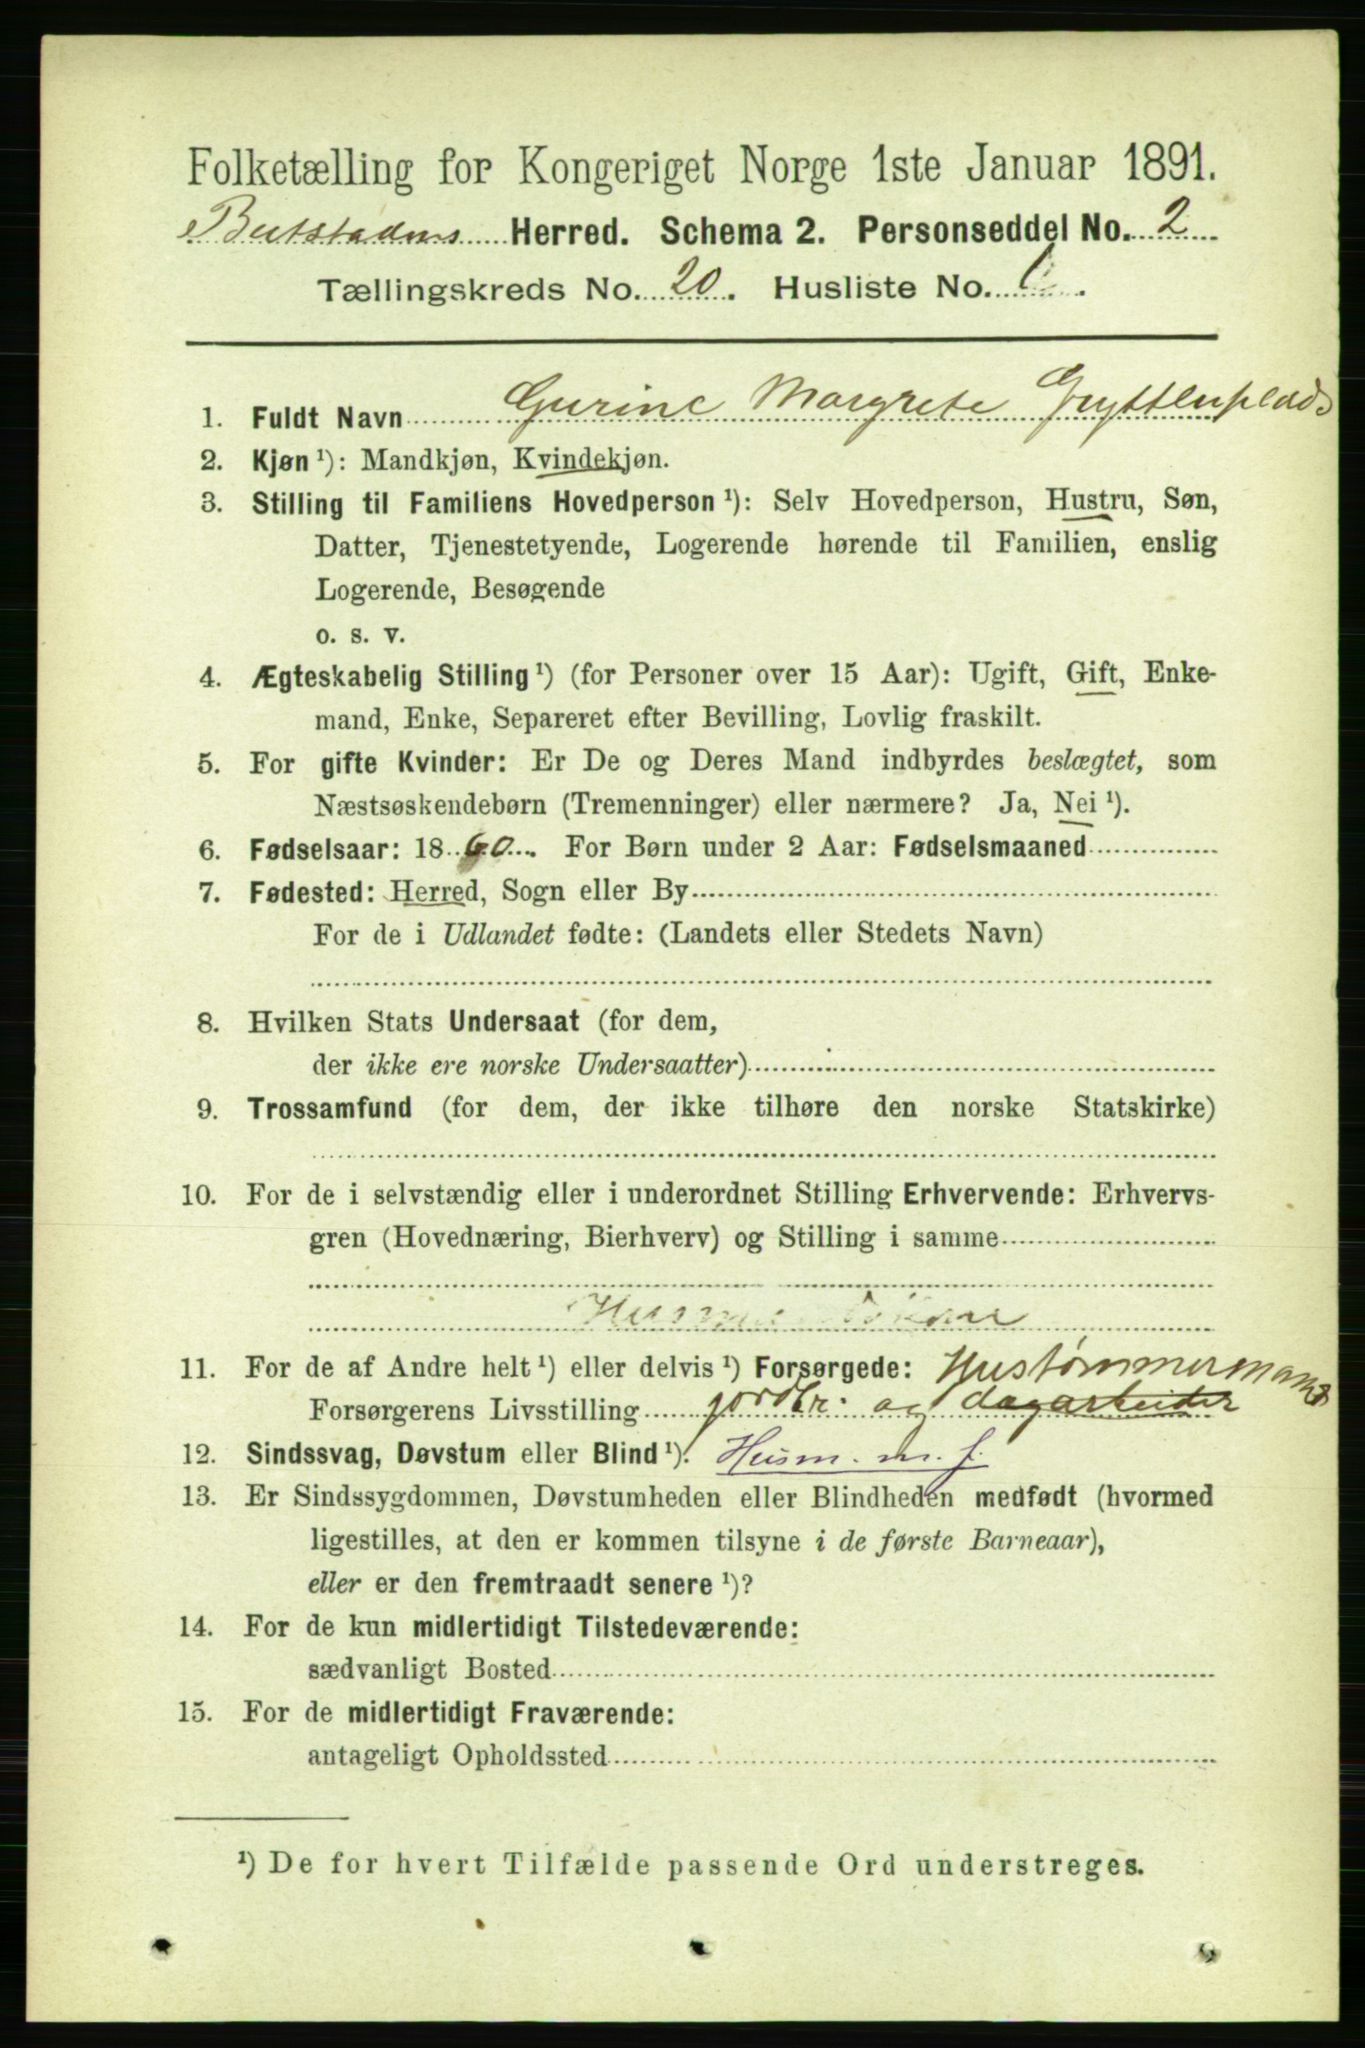 Folketælling for Kongeriget Norge 1ste Januar 1891.
Beitstadens Herred. Schema 2. Personseddel No. 2
Tællingskreds No. 20. Husliste No.
1. Fuldt Navn Gurine Margrete Gryttenplads
2. Kjøn ¹): Mandkjøn, Kvindekjøn.
3. Stilling til Familiens Hovedperson ¹): Selv Hovedperson, Hustru, Søn,
Datter, Tjenestetyende, Logerende hørende til Familien, enslig
Logerende, Besøgende
o. s. v.
4. Ægteskabelig Stilling ¹) (for Personer over 15 Aar): Ugift, Gift, Enke-
mand, Enke, Separeret efter Bevilling, Lovlig fraskilt.
5. For gifte Kvinder: Er De og Deres Mand indbyrdes beslægtet, som
Næstsøskendebørn (Tremenninger) eller nærmere? Ja, Nei ¹).
6. Fødselsaar: 1860. For Børn under 2 Aar: Fødselsmaaned
7. Fødested: Herred, Sogn eller By
For de i Udlandet fødte: (Landets eller Stedets Navn)
8. Hvilken Stats Undersaat (for dem,
der ikke ere norske Undersaatter)
9. Trossamfund (for dem, der ikke tilhøre den norske Statskirke)
10. For de i selvstændig eller i underordnet Stilling Erhvervende: Erhvervs-
gren (Hovednæring, Bierhverv) og Stilling i samme
11. For de af Andre helt ¹) eller delvis ¹) Forsørgede: Hustømmermand
Forsørgerens Livsstilling jordbr. og dagarbeider
12. Sindssvag, Døvstum eller Blind ¹). Husm. m. j.
13. Er Sindssygdommen, Døvstumheden eller Blindheden medfødt (hvormed
ligestilles, at den er kommen tilsyne i de første Barneaar),
eller er den fremtraadt senere ¹)?
14. For de kun midlertidigt Tilstedeværende:
sædvanligt Bosted
15. For de midlertidigt Fraværende:
antageligt Opholdssted
¹) De for hvert Tilfælde passende Ord understreges.